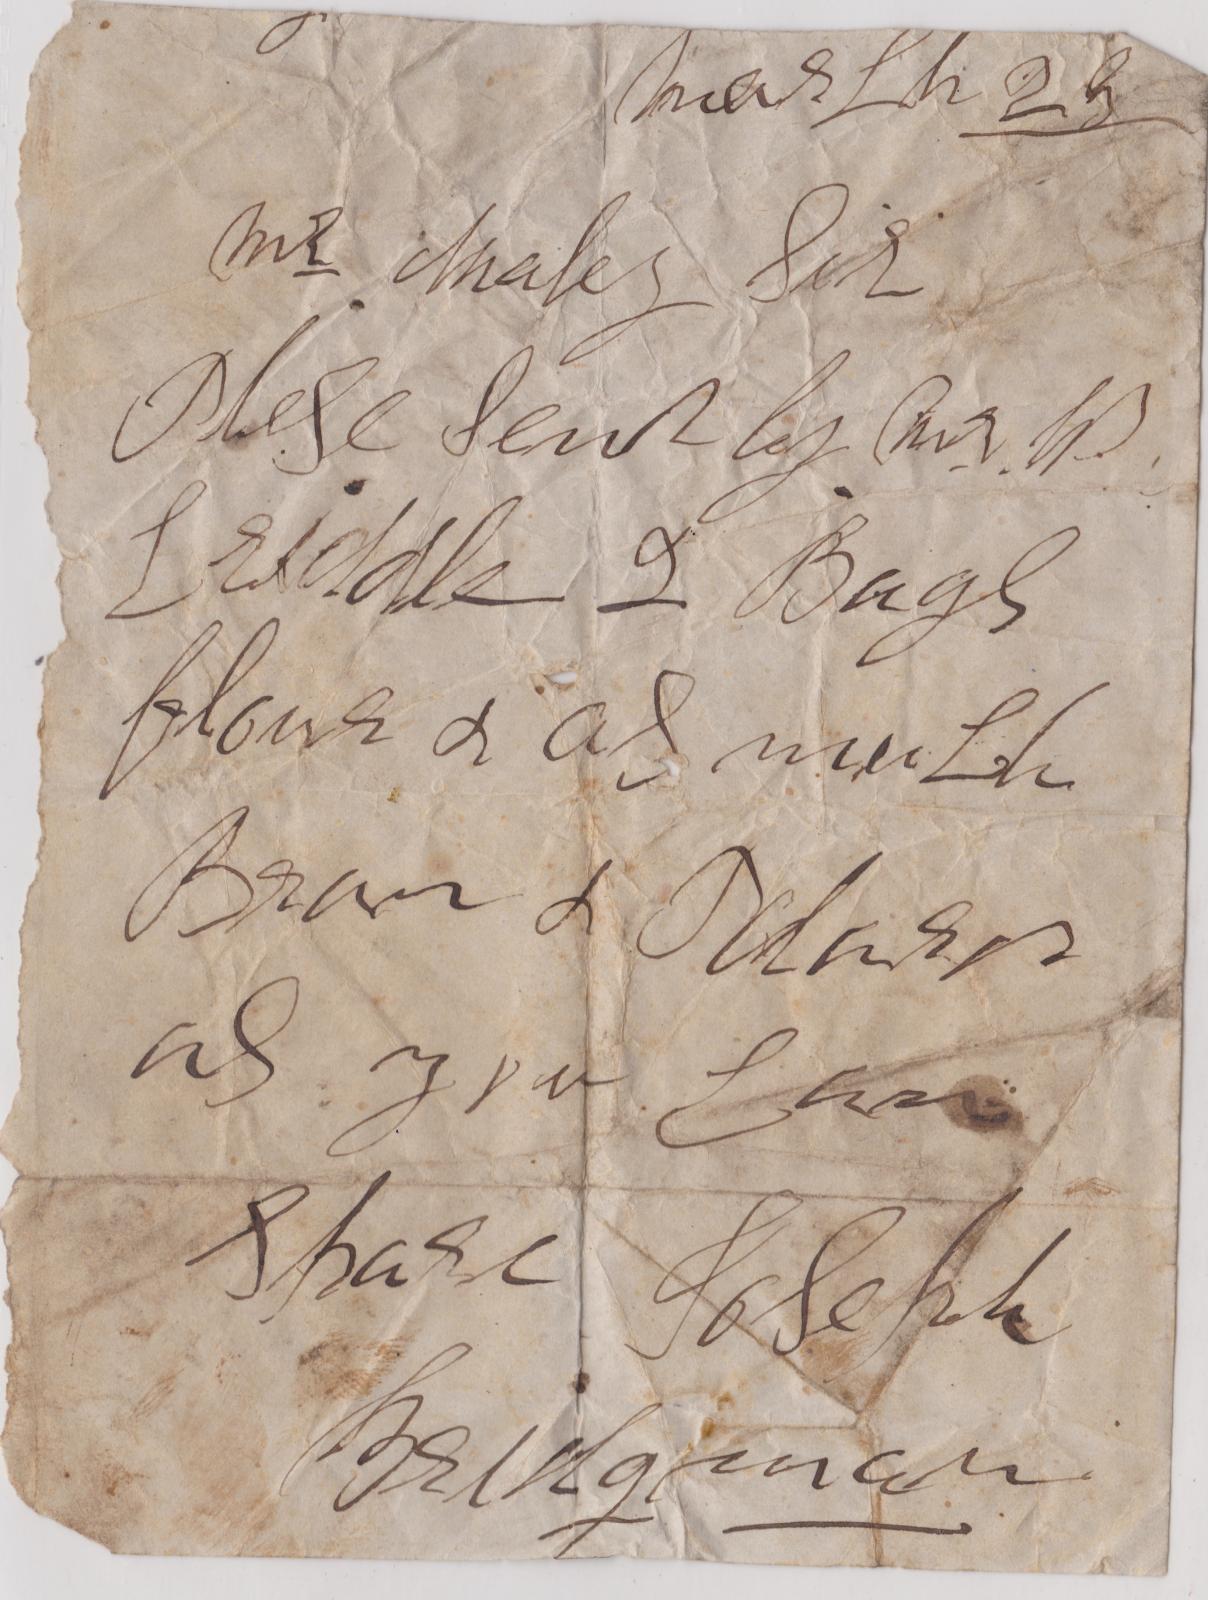 March 28
Mr Maley Sir
Plese Send by Mr W.
Criddle 2 Bags
flour & as much
Bran & Polard
as you Can
Share Joseph
Bridgman